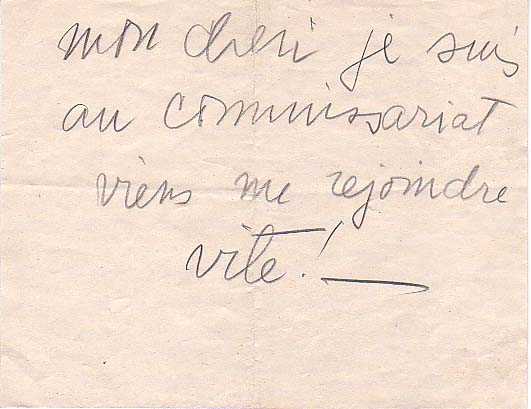 mon cheri je suis
au commissariat
viens me rejoindre
vite!